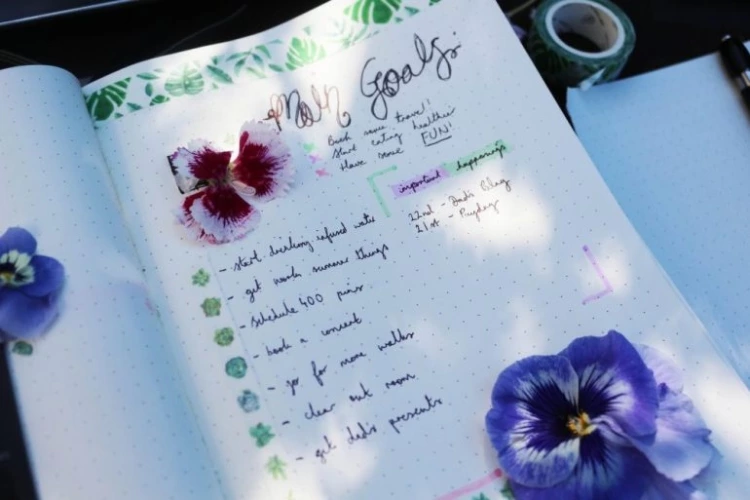 Main Goals:
Book some travel!
Start eating healthier
Have some FUN!
important happenings
22nd - Dad's Bday
21st - Payday
- start drinking infused water
- get summer things
- Schedule 400 pins
- book a
- go for more walks
- clear out room
- get dad's presents